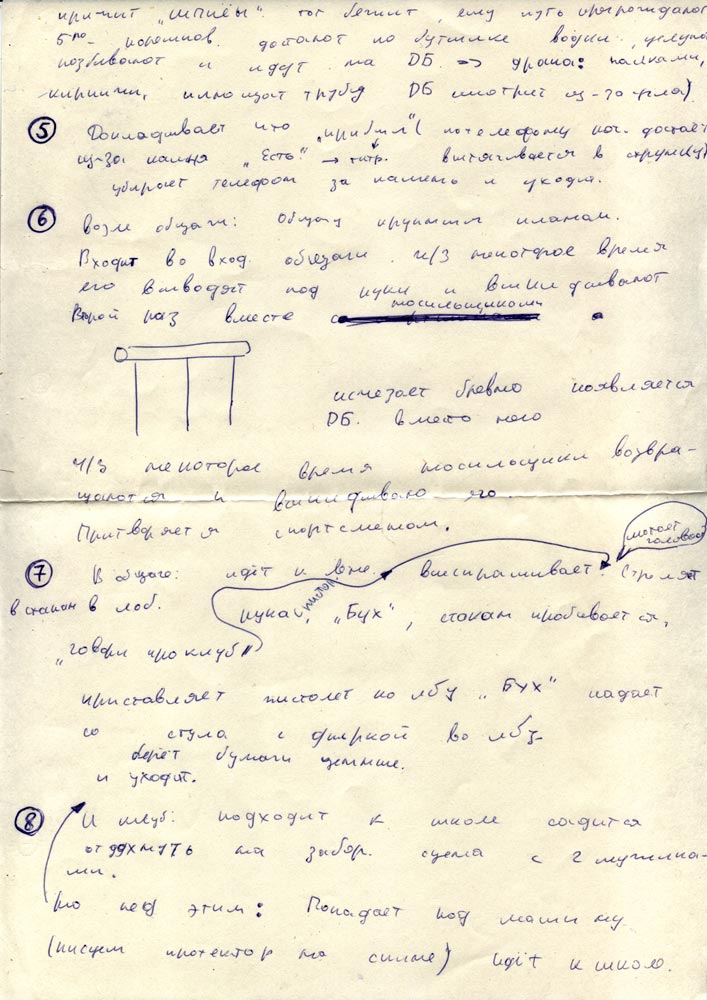 кричит „шпиён". тот бежит, ему путь преграждают
5 ро- коренков. достают по бутылке водки,
разбивают и идут на DБ. => драка: палками,
кирпичи, и DБ смотрит из-за угла)
⑤ Докладывает что „прибыл" (по телефону кот. достаёт
из-за камня „Есть!" → вытягивается в струнку)
убирает телефон за камень и уходит.
⑥ возле общаги: Общагу крупным планом.
Входит во вход общаги. ч/з некоторое время
его выводят под руки и выкидывают
Второй раз вместе с носильщиками
исчезает бревно появляется
DБ. вместо него
Ч/з некоторое время носильщики возвра-
щаются и выкидываю его.
Притворяется спортсменом.
⑦ В общаге: идёт к выспрашивает. Стреляет
мотает головой
в стакан в лоб. рука с пистол. „Бух", стакан пробивается,
„говори про клуб"
приставляет пистолет ко лбу „Бух" падает
со стула с дыркой во лбу-
берёт бумаги ценные.
и уходит.
⑧ И клуб: подходит к школе садится
отдохнуть на забор. сцена с 2 мужика-
ми.
Но пед этим: Попадает под машину
(рисуем протектор на спине) идёт к школе.